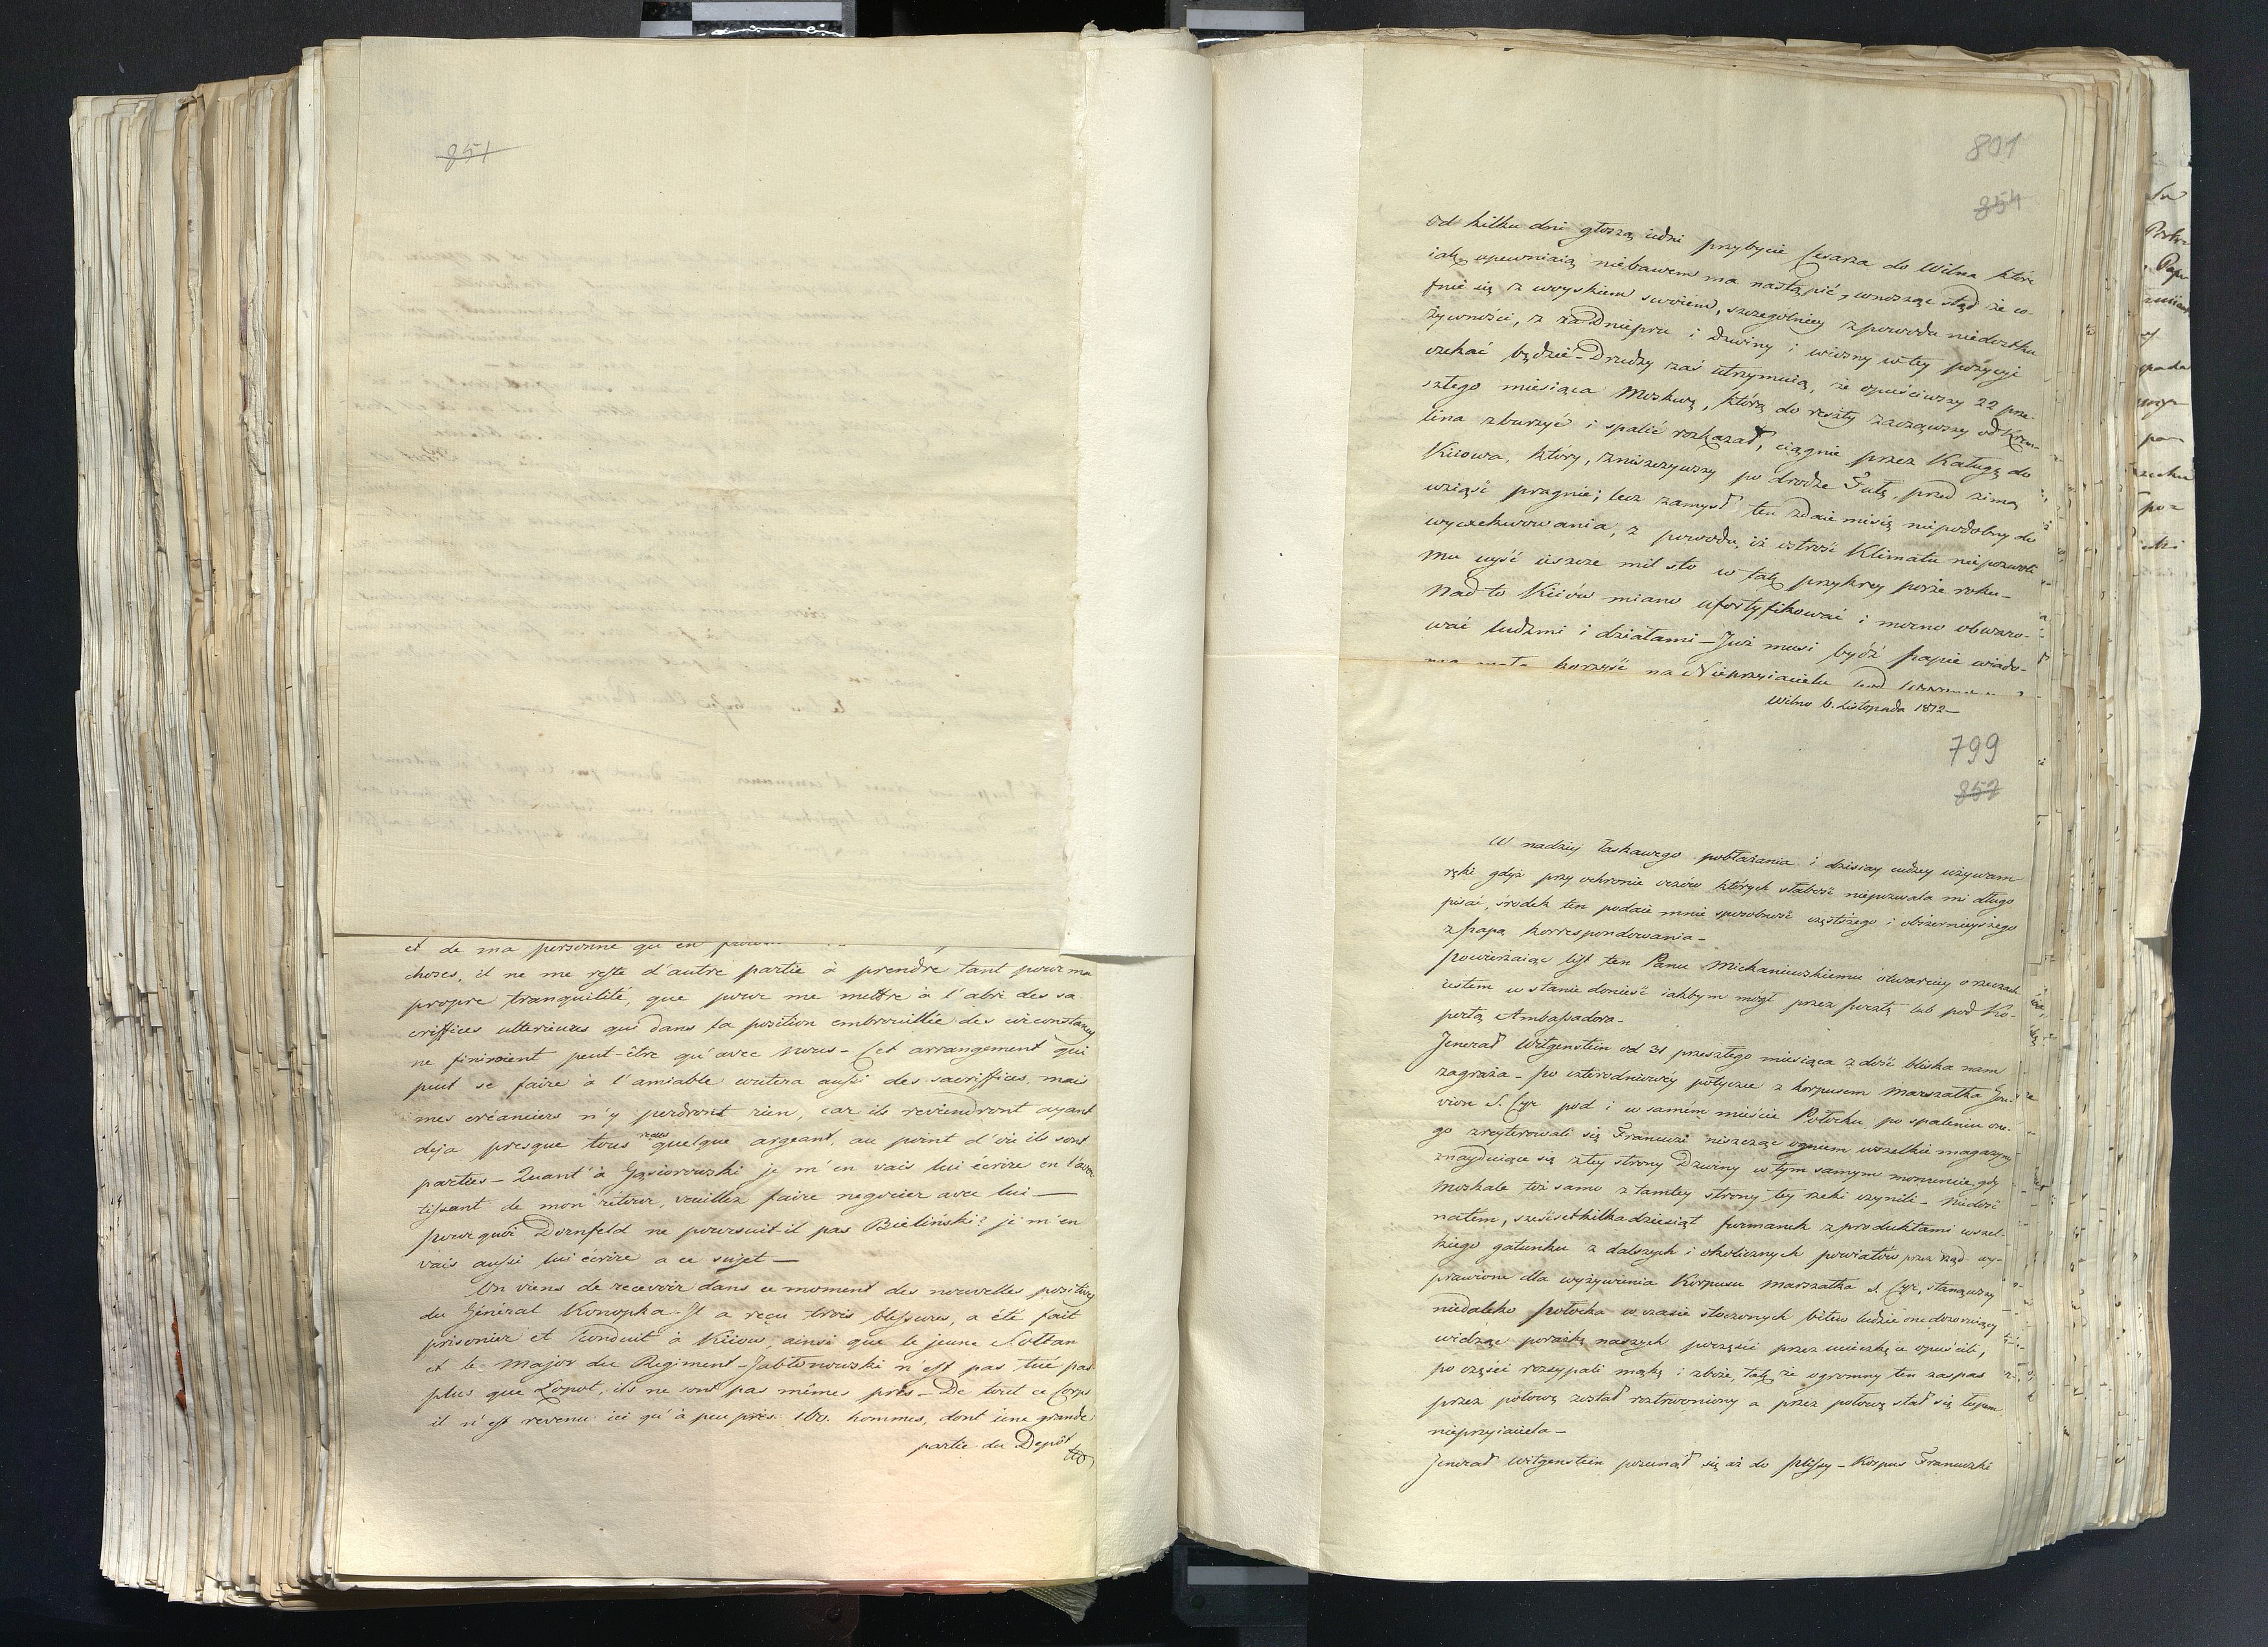 851
et de ma personne qu'en
choses, il ne me reste d'autre partie à prendre tant pour ma
propre tranquilité, que pour me mettre à l'abri des sa
criffices ulterieurs qui dans la position embrouillée des circonstances
ne finiroient peut-être qu'avec nous – Cet arrangement qui
peut se faire à l'amiable evitera aussi des sacriffices, mais
mes créanciers n'y perdront rien, car ils reviendront ayant
deja presque tous reçus quelque argeant, au point d'où ils sont
parties – Quant à Gąsiorowski je m'en vais lui écrire en l'aver
tissant de mon retour, veuillez faire negocier avec lui —
pourquoi Dornfeld ne poursuit-il pas Bieliński? je m'en
vais aussi lui écrire a ce sujet —
On viens de recevoir dans ce moment des nouvelles positives
du Général Konopka – Il a reçu trois blessures, a été fait
prisonier et conduit à Kiiow, ainsi que le jeune Soltan
et le Major du Regiment – Jabłonowski n'est pas tué pas
plus que Łopot, ils ne sont pas mêmes pris – De tout ce Corps
il n'est revenu ici qu'à peu près 160. hommes, dont une grande
partie du Depôt
801
854
Od kilku dni głoszą iedni przybycie Cesarza do Wilna które
iak upewniaią niebawem ma nastąpić, wnosząc stąd że co-
fnie się z woyskiem swoiem, szczególniey z powodu niedostku
żywności, z za Dniepru i Dzwiny i wiosny w tey pozycyi
czekać będzie – Drudzy zaś utrzymuią, że opuściwszy 22 prze-
szłego miesiąca Moskwę, którą do reszty zacząwszy od Krem-
lina zburzyć i spalić rozkazał, ciągnie przez Kaługę do
Kiiowa, który, zniszczywszy po drodze Tułę, przed zimą
wziąść pragnie; lecz zamysł ten zdaie mi się niepodobny do
wyexekwowania, z powodu, iż ostrość Klimatu niepozwoli
mu uyść ieszcze mil sto w tak przykrey porze roku –
Nad to Kiiów miano ufortyfikować i mocno obwaro-
wać ludzmi i działami – Już musi bydź papie wiado-
korzyść na Nieprzyiacielu
Wilno 6. Listopada 1812 —
799
852
W nadziei łaskawego pobłażania i dzisiay cudzey używam
ręki gdyż przy ochronie oczów których słabość niepozwala mi długo
pisać, środek ten podaie mnie sposobność częstszego i obszernieyszego
z papą korrespondowania –
Powierzaiąc list ten Panu Michaniewskiemu otwarciey o rzeczach
iestem w stanie donieść iakbym mógł przez pocztę lub pod Ko-
pertą Ambassadora –
Jenerał Witgenstein od 31 przeszłego miesiąca z dość bliska nam
zagraża – po czterodniowéy potyczce z korpusem Marszałka Gou-
vion S. Cyr pod i w samém mieście Połocku, po spaleniu one-
go zreyterowali się Francuzi niszcząc ogniem wszelkie magazyny
znayduiące się z tey strony Dzwiny w tym samym momencie, gdy
Moskale toż samo z tamtey strony tey rzeki czynili – Niedość
natem, sześćset kilkadziesiąt furmanek z produktami wszel-
kiego gatunku z dalszych i okolicznych powiatów przez rząd wy-
prawione dla wyżywienia Korpusu Marszałka S. Cyr, stanąwszy
niedaleko Połocka w czasie stoczonych bitew ludzie one dozoruiący
widząc porażkę naszych poczęści przez ucieczkę ie opuścili,
po części rozsypali mąkę i zboże, tak że ogromny ten zaspas
przez połowę został roztrwoniony a przez połowę stał się łupem
nieprzyiaciela –
Jenerał Witgenstein posunął się aż do Plissy – Korpus Francuzki